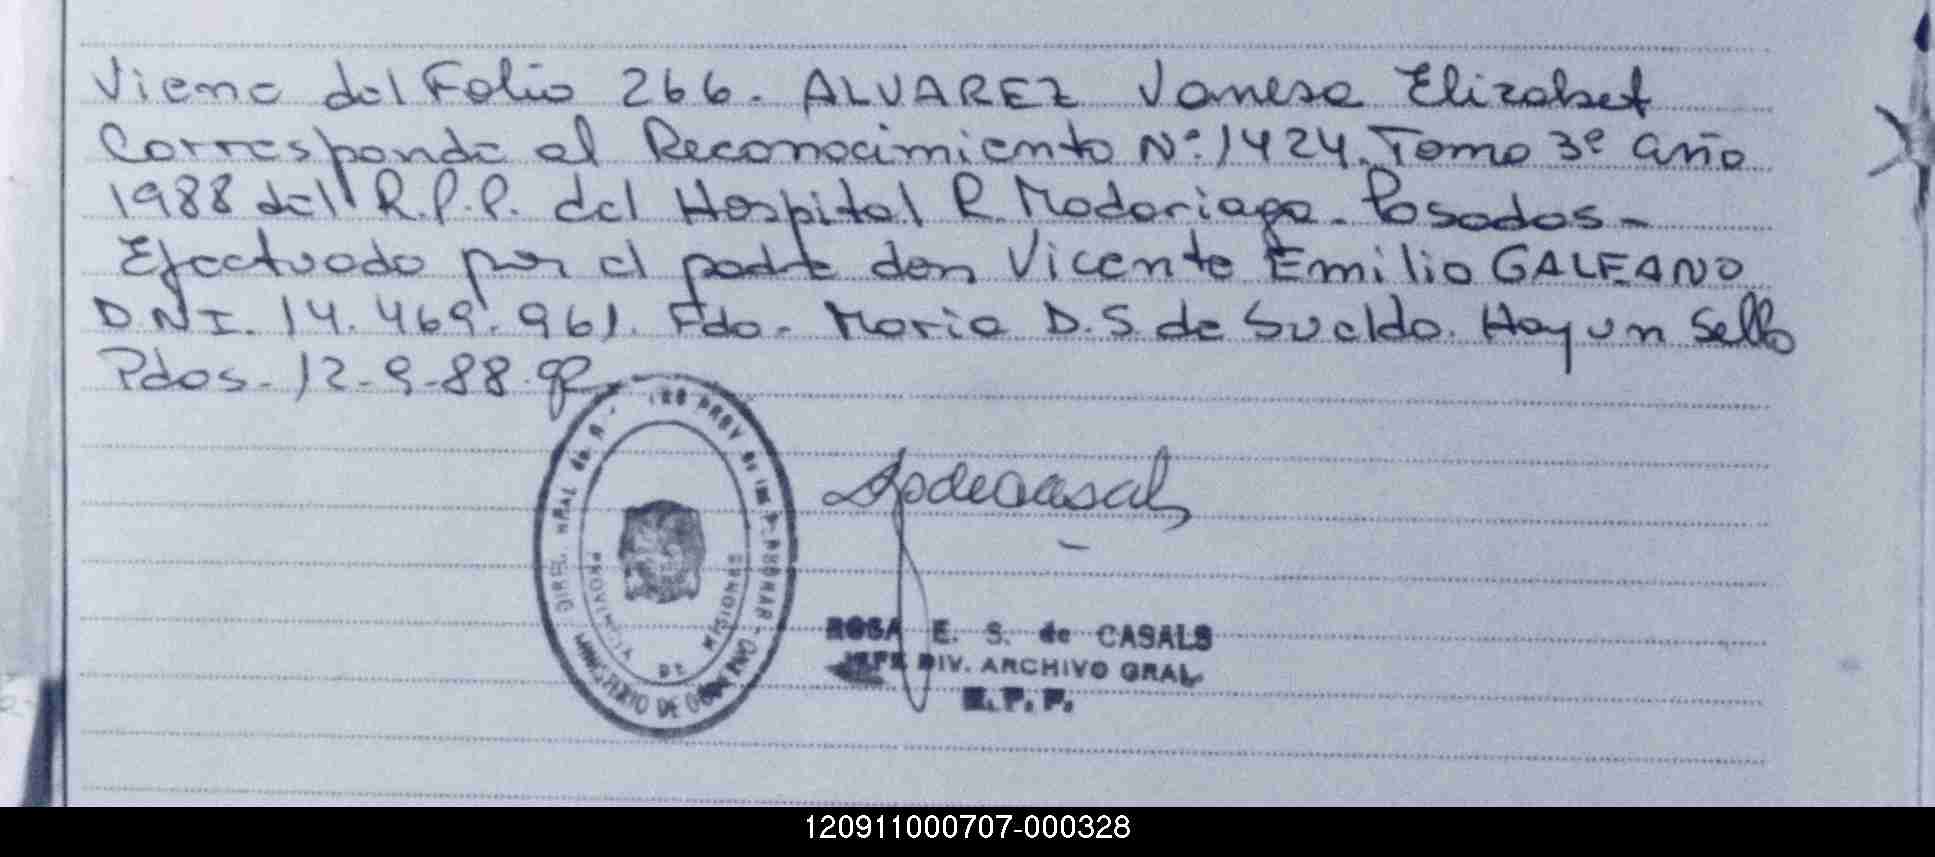 Viene del Folio 266. ALVAREZ Vanesa Elizabet
Corresponde al Reconocimiento Nº. 1424. Tomo 3º año
1988 del R.P.P. del Hospital R. Madariaga. Posadas -
Efectuado por el padre don Vicente Emilio GALEANO
DNI. 14.469.961. Fdo. Maria D.S. de Sualdo. Hay un Sello
Pdos. 12-9-88.
PROV
MINISTERIO DE GOBIERNO
PROVINCIA DE MISIONES
ROSA E. S. de CASALS
JEFE DIV. ARCHIVO GRAL
R.P.P.
120911000707-000328